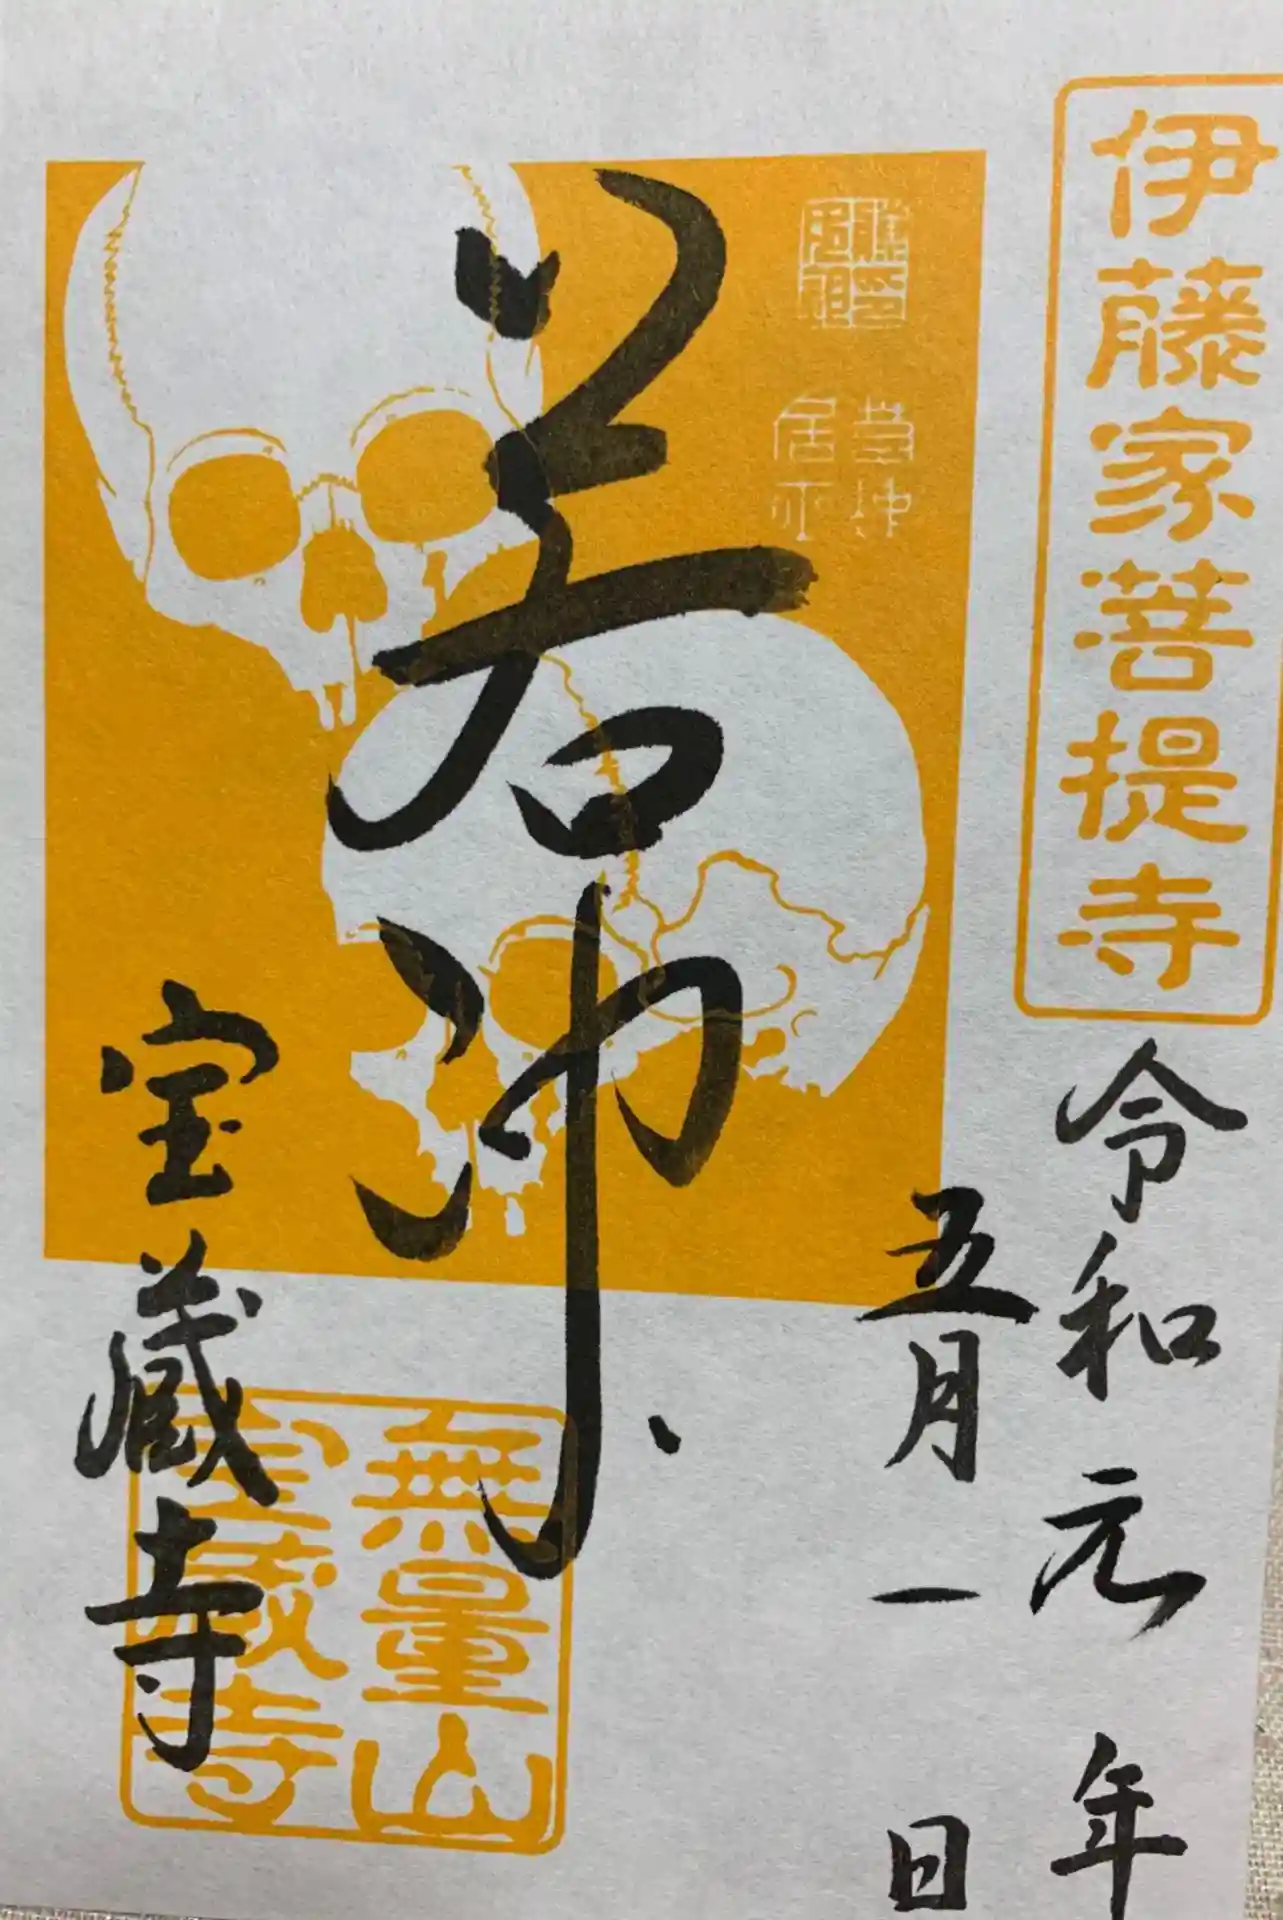 伊藤家菩提寺
令和元年
五月一日
若冲
無量山
宝蔵寺
宝蔵寺